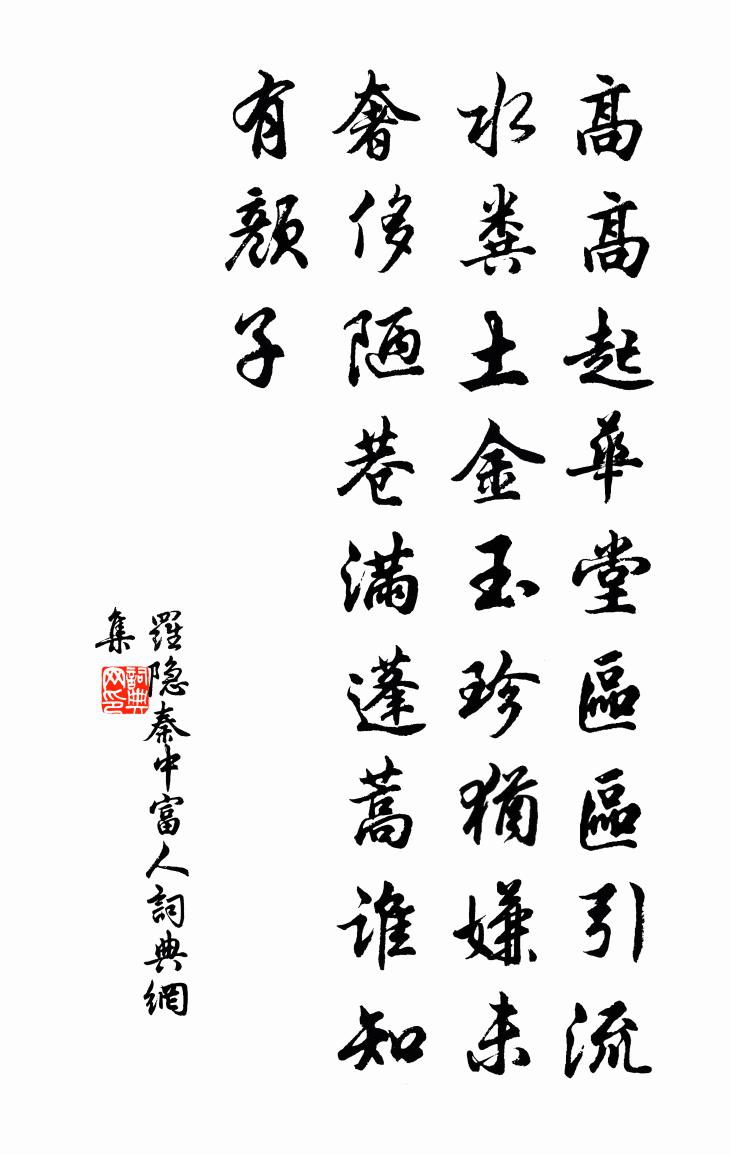 高高起華堂區區引流
水糞土金玉珍猶嫌未
奢侈陋巷滿蓬蒿誰知
有顏子
羅隐秦中富人詞典網
集
詞典网印